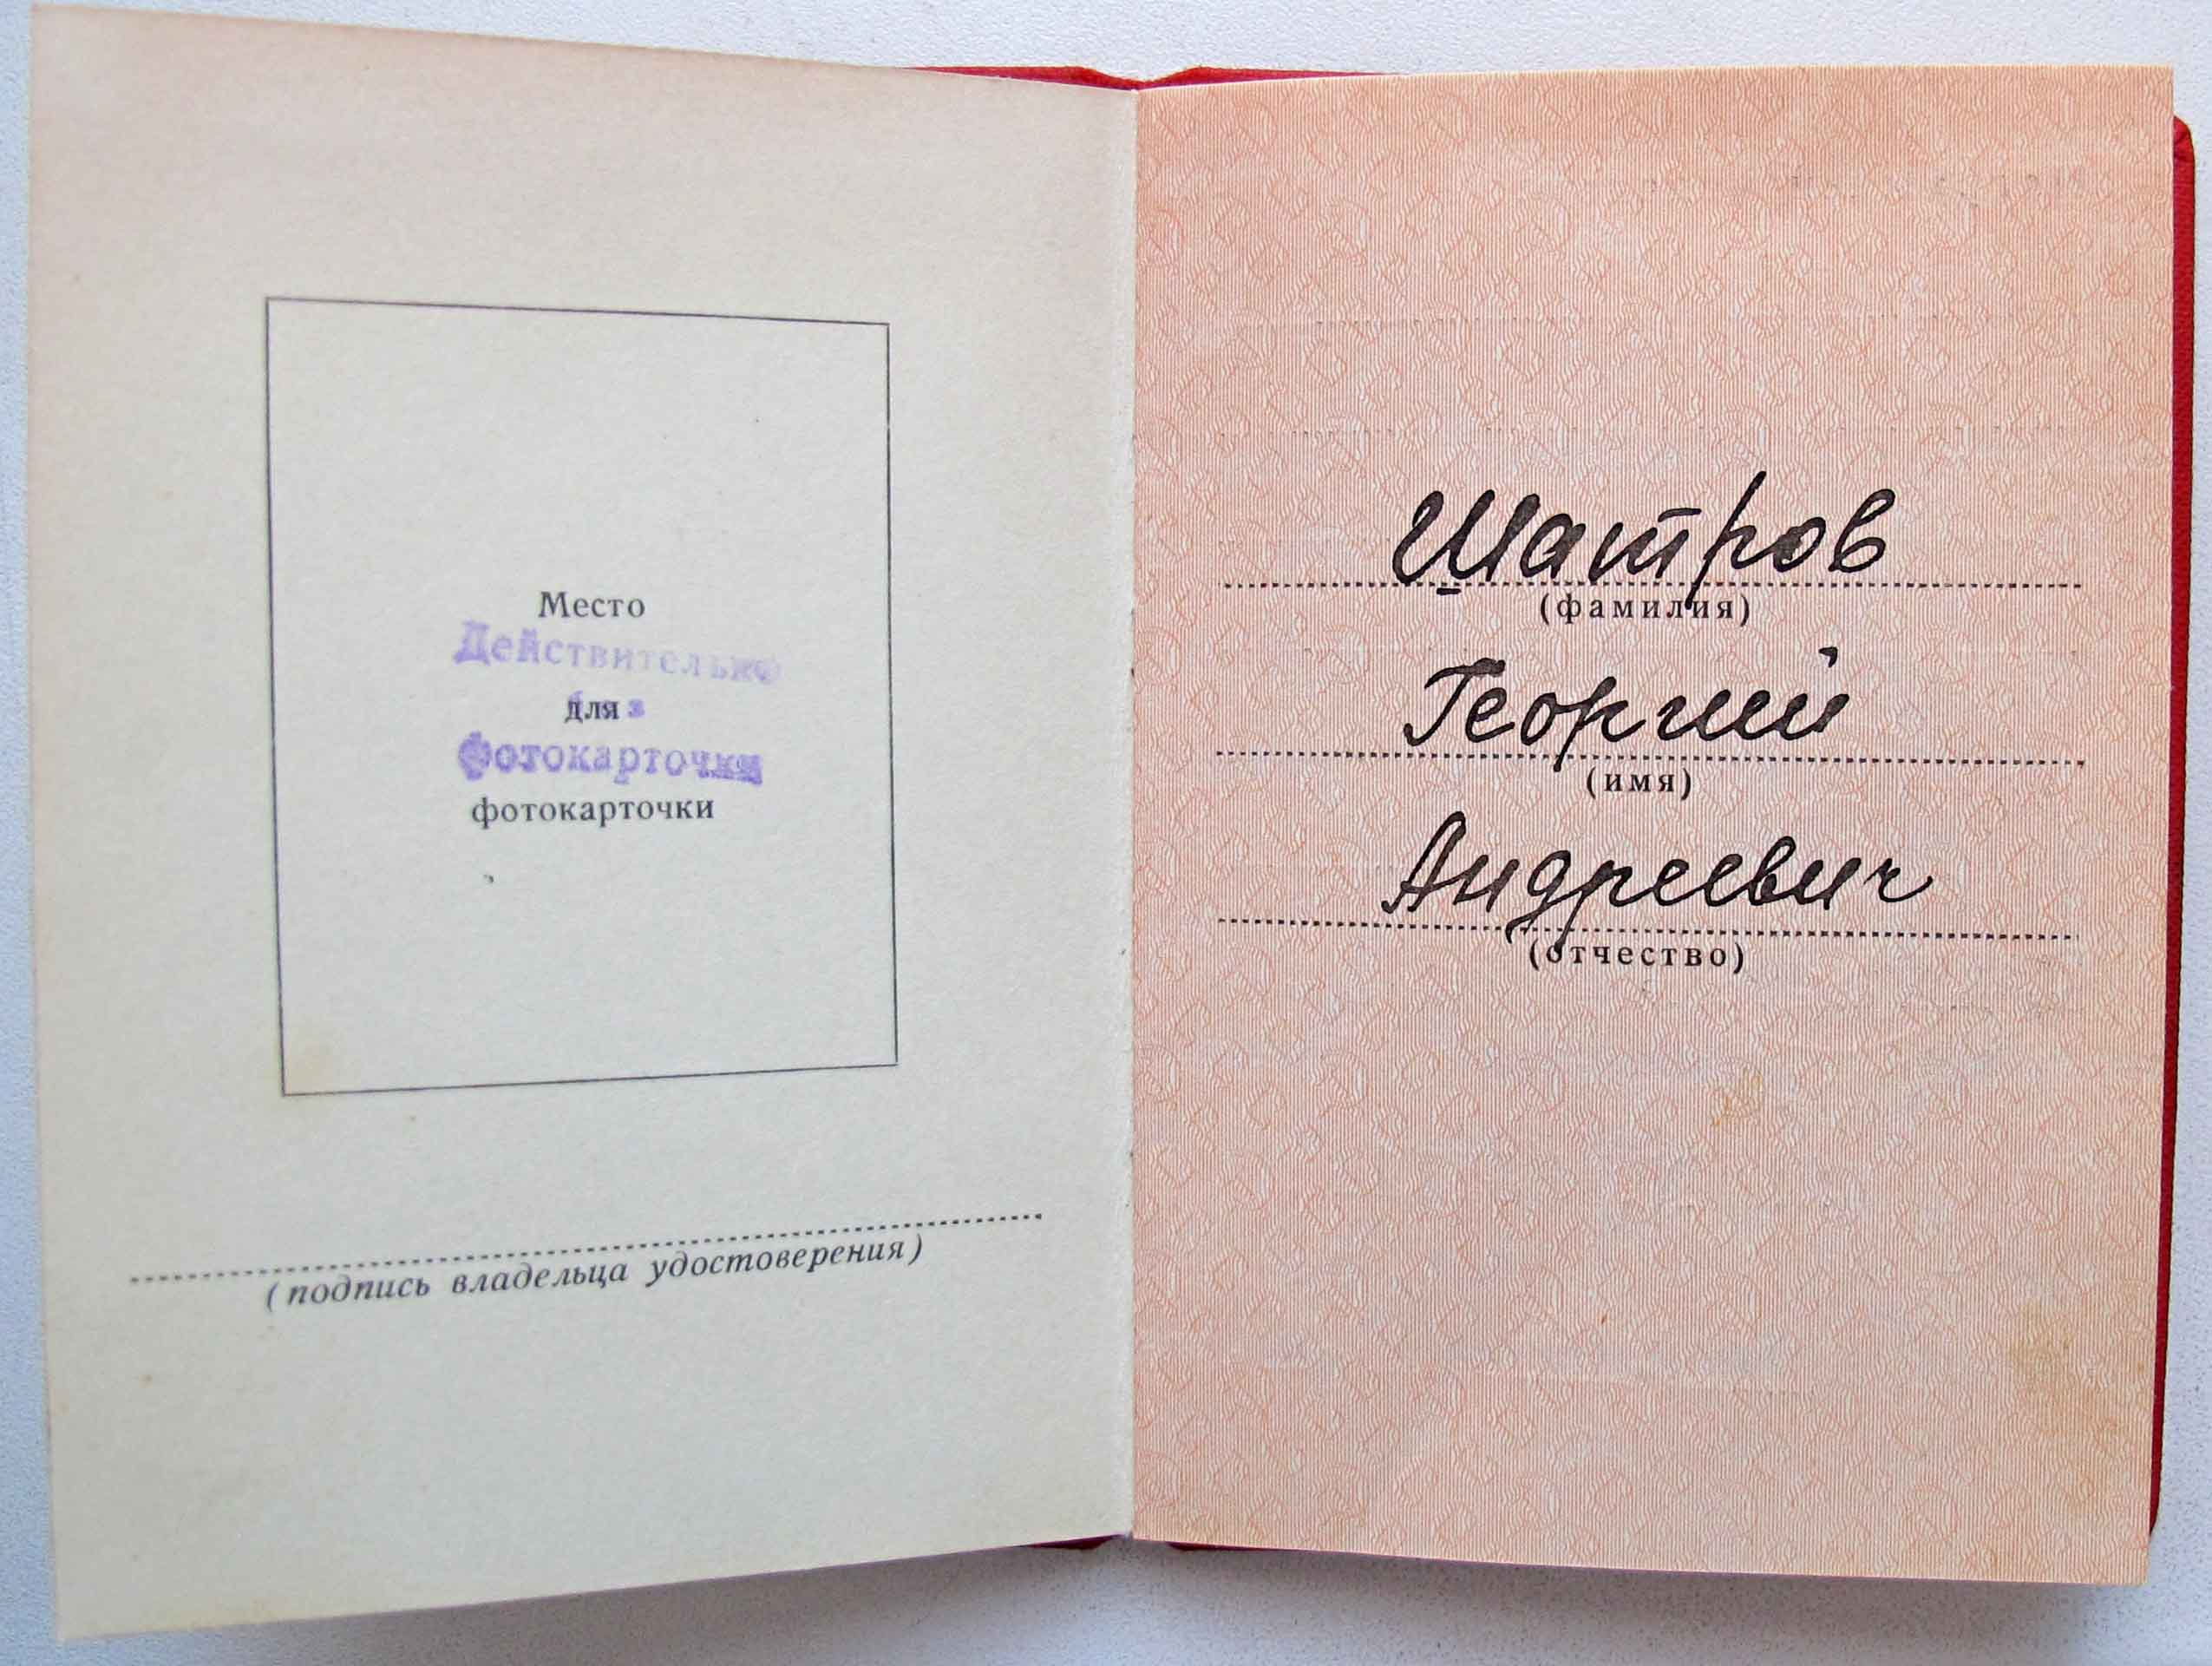 Место
Действительно
для
без
Фотокарточки
фотокарточки
(подпись владельца удостоверения)
Шатров
(фамилия)
Георгий
(имя)
Андреевич
(отчество)